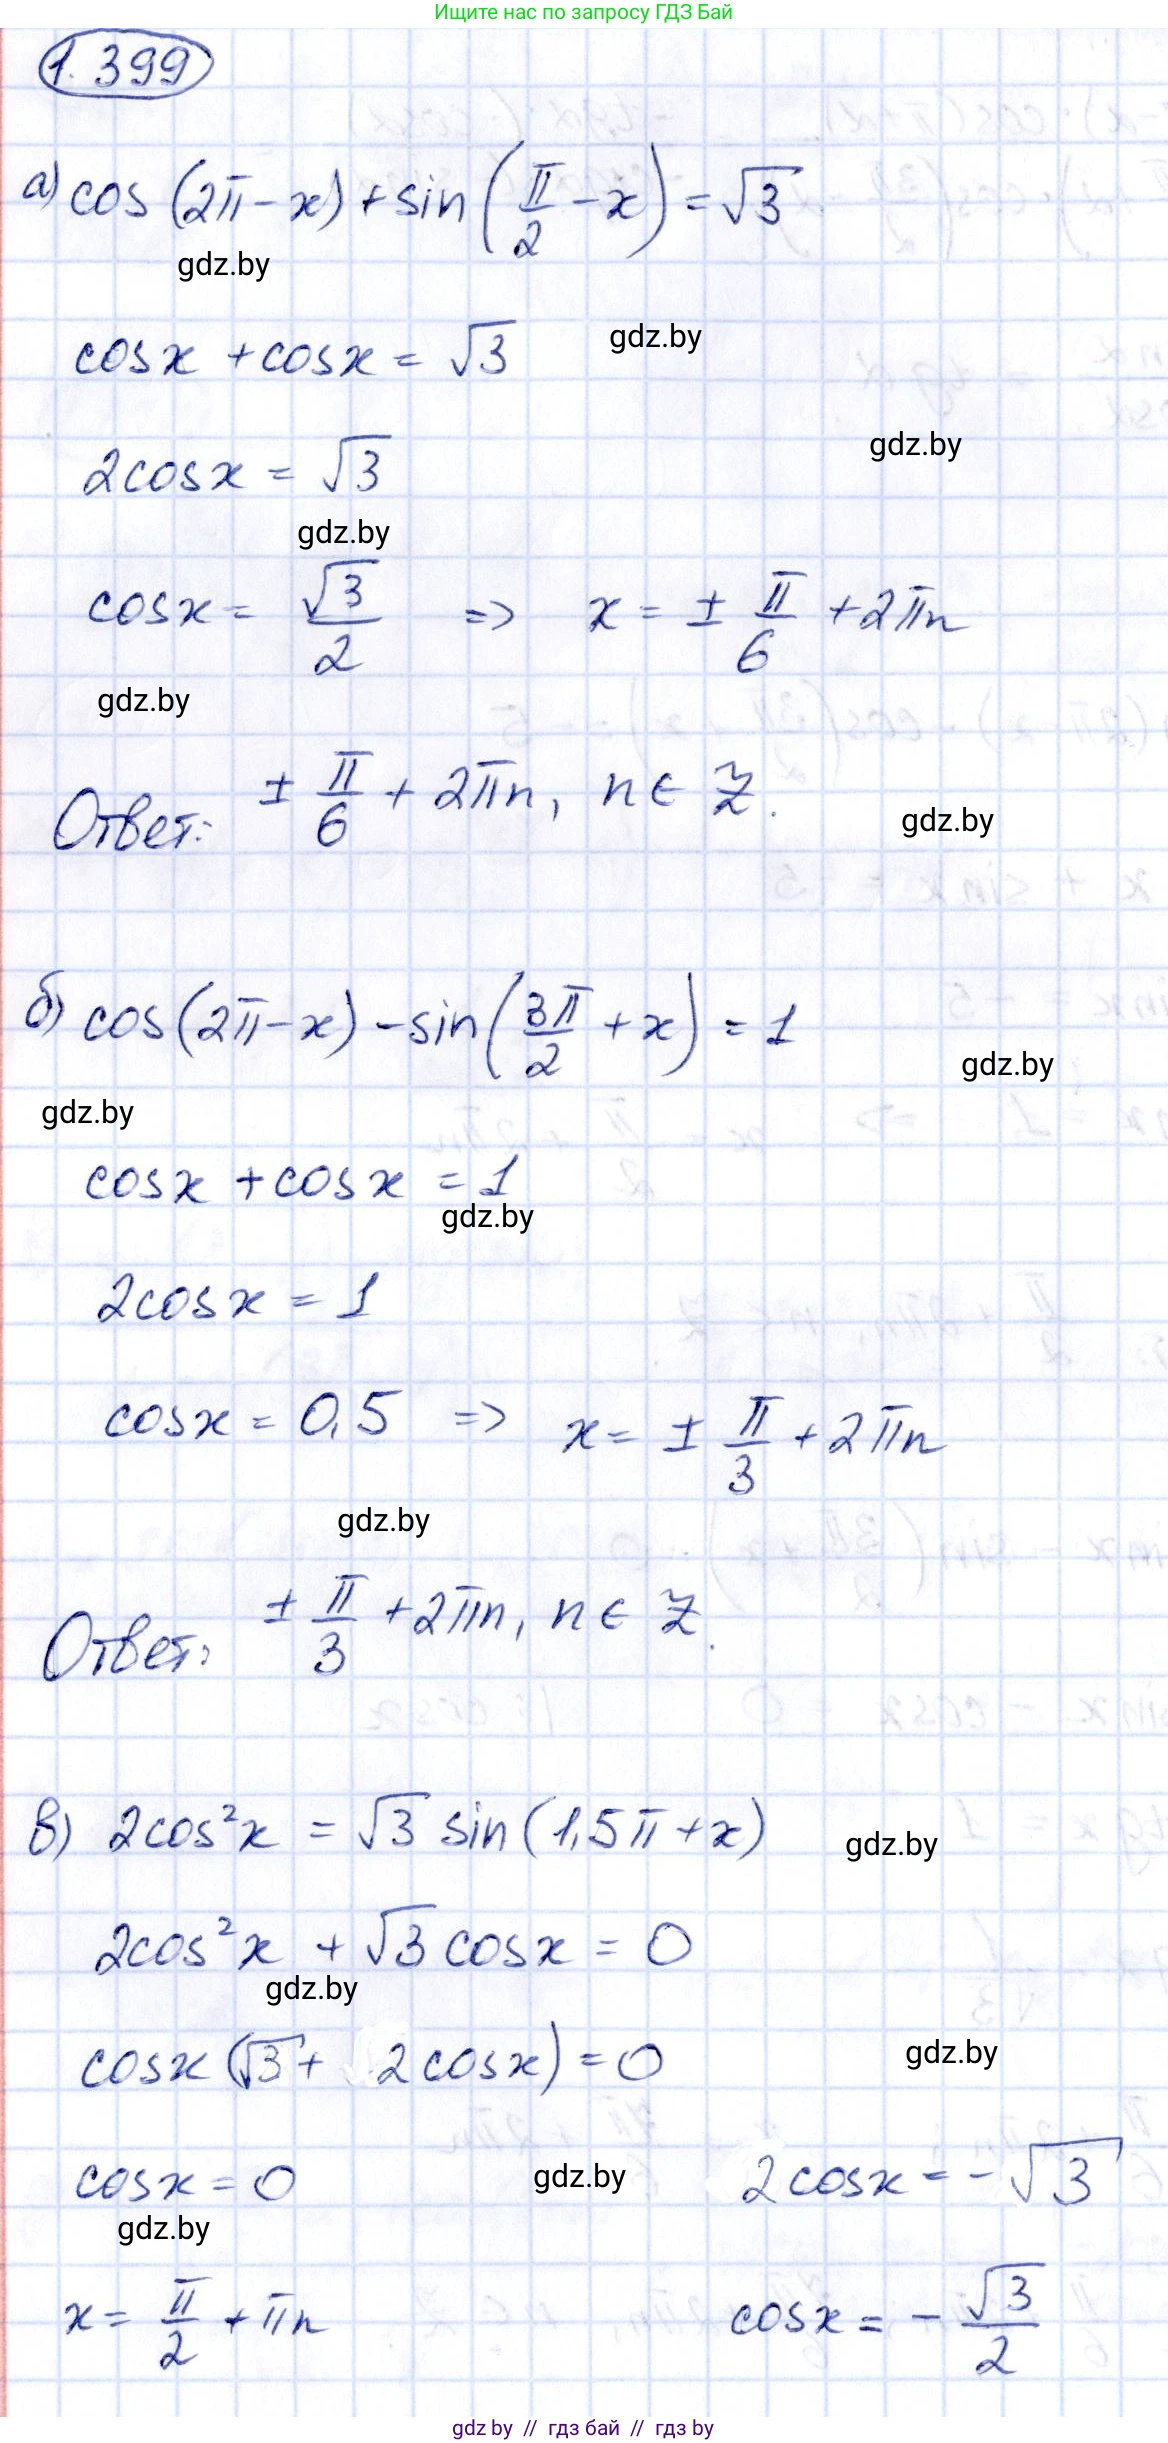 Ищите нас по запросу ГДЗ Бай
1.399
а) cos(2π-x)+sin(π/2-x)=√3
gdz.by
cosx+cosx=√3
gdz.by
2cosx=√3
gdz.by
gdz.by
cosx=√3/2 => x=±π/6+2πn
gdz.by
Ответ: ±π/6+2πn, n∈Z.
gdz.by
б) cos(2π-x)-sin(3π/2+x)=1
gdz.by
gdz.by
cosx+cosx=1
gdz.by
2cosx=1
cosx=0,5 => x=±π/3+2πn
gdz.by
Ответ: ±π/3+2πn, n∈Z.
в) 2cos²x=√3 sin(1,5π+x)
gdz.by
2cos²x+√3cosx=0
gdz.by
cosx(√3+2cosx)=0
gdz.by
cosx=0 2cosx=-√3
gdz.by
gdz.by
x=π/2+πn cosx=-√3/2
gdz by // гдз бай // гдз by